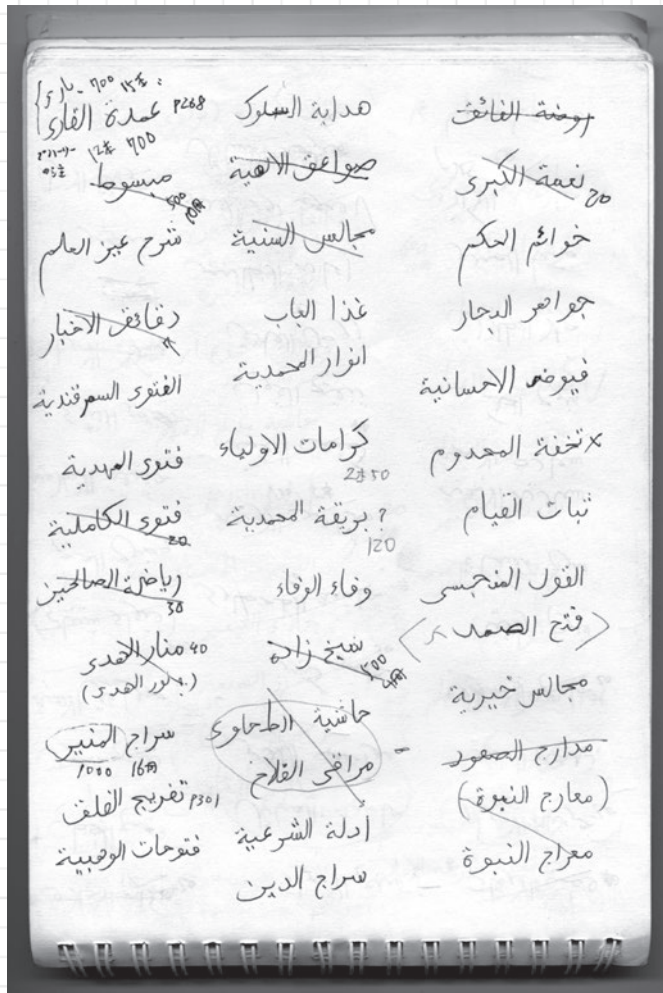 روضة الفائقت
نعمة الكبرى
20
خوائم الحكم
جواهر البحار
فيوض الاحسانية
× تخفة المخدوم
ثبات القيام
القول
فتح الصمد ×
مجالس خيرية
مدارج الصعود
(معارج النبوة)
معراج النبوة
هداية السلوك
صواعق الالهية
مجالس السنية
غذا
انوار المحمدية
كرامات الاولياء
50
؟ بريقة المحمدية
120
وفاء الوفاء
شيخ زاده
500
حاشية الطحاوى
مراقى الفلاح
أدلة الشرعية
سراج الدين
700
عمدة القارى P268
700
مبسوط
500
شرح عين العلم
دقائق الاخبار
الفتوى السمرقندية
فتوى المهدية
فتوى الكاملية
20
رياض الصالحين
30
منار الهدى 40
سراج المنير
1000 16
تفريج القلق P301
فتوحات الوهبية